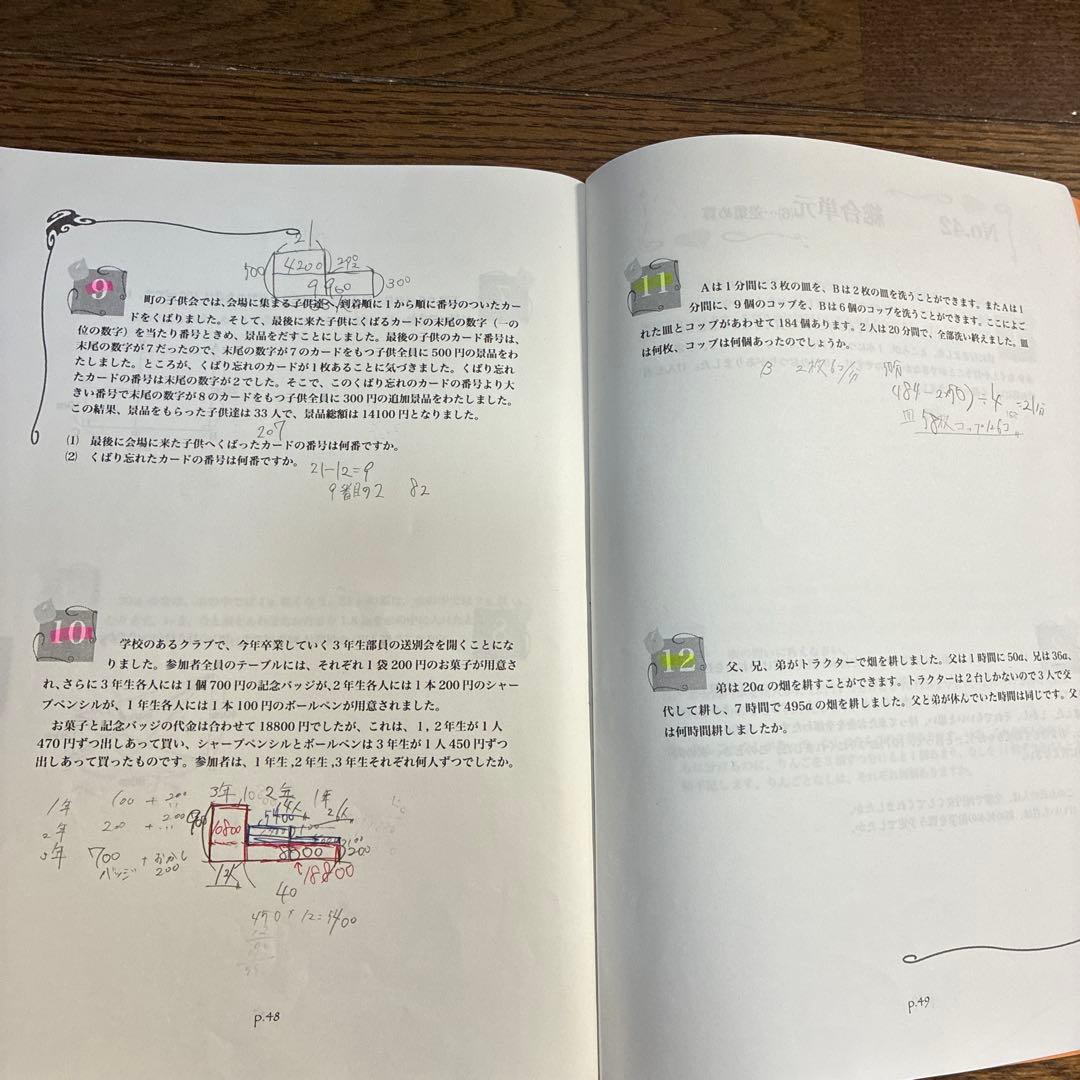 21
500
4200
292
9900
300
9
町の子供会では、会場に集まる子供達へ、到着順に1から順に番号のついたカー
ドをくばりました。そして、最後に来た子供にくばるカードの末尾の数字（一の
位の数字）を当たり番号ときめ、景品をだすことにしました。最後の子供のカード番号は、
末尾の数字が7だったので、末尾の数字が7のカードをもつ子供全員に500円の景品をわ
たしました。ところが、くばり忘れのカードが1枚あることに気づきました。くばり忘れ
たカードの番号は末尾の数字が2でした。そこで、このくばり忘れのカードの番号より大
きい番号で末尾の数字が8のカードをもつ子供全員に300円の追加景品をわたしました。
この結果、景品をもらった子供達は33人で、景品総額は14100円となりました。
207
(1) 最後に会場に来た子供へくばったカードの番号は何番ですか。
(2) くばり忘れたカードの番号は何番ですか。
21-12=9
9番目の2 82
10
学校のあるクラブで、今年卒業していく3年生部員の送別会を開くことにな
りました。参加者全員のテーブルには、それぞれ1袋200円のお菓子が用意さ
れ、さらに3年生各人には1個700円の記念バッジが、2年生各人には1本200円のシャー
プペンシルが、1年生各人には1本100円のボールペンが用意されました。
お菓子と記念バッジの代金は合わせて18800円でしたが、これは、1，2年生が1人
470円ずつ出しあって買い、シャープペンシルとボールペンは3年生が1人450円ずつ
出しあって買ったものです。参加者は、1年生，2年生，3年生それぞれ何人ずつでしたか。
1年 100 + 200
2年 200 + 200
3年 700 + おかし
バッジ 200
3年 2年 1年
900
10800
5400
8000
200
12人
18800
40
450×12=5400
p.48
11
Aは1分間に3枚の皿を、Bは2枚の皿を洗うことができます。またAは1
分間に、9個のコップを、Bは6個のコップを洗うことができます。ここによご
れた皿とコップがあわせて184個あります。2人は20分間で、全部洗い終えました。皿
は何枚、コップは何個あったのでしょうか。
B 2枚6コ/分
皿58枚コップ126コ
12
父、兄、弟がトラクターで畑を耕しました。父は1時間に50a、兄は36a、
弟は20aの畑を耕すことができます。トラクターは2台しかないので3人で交
代して耕し、7時間で495aの畑を耕しました。父と弟が休んでいた時間は同じです。父
は何時間耕しましたか。
p.49